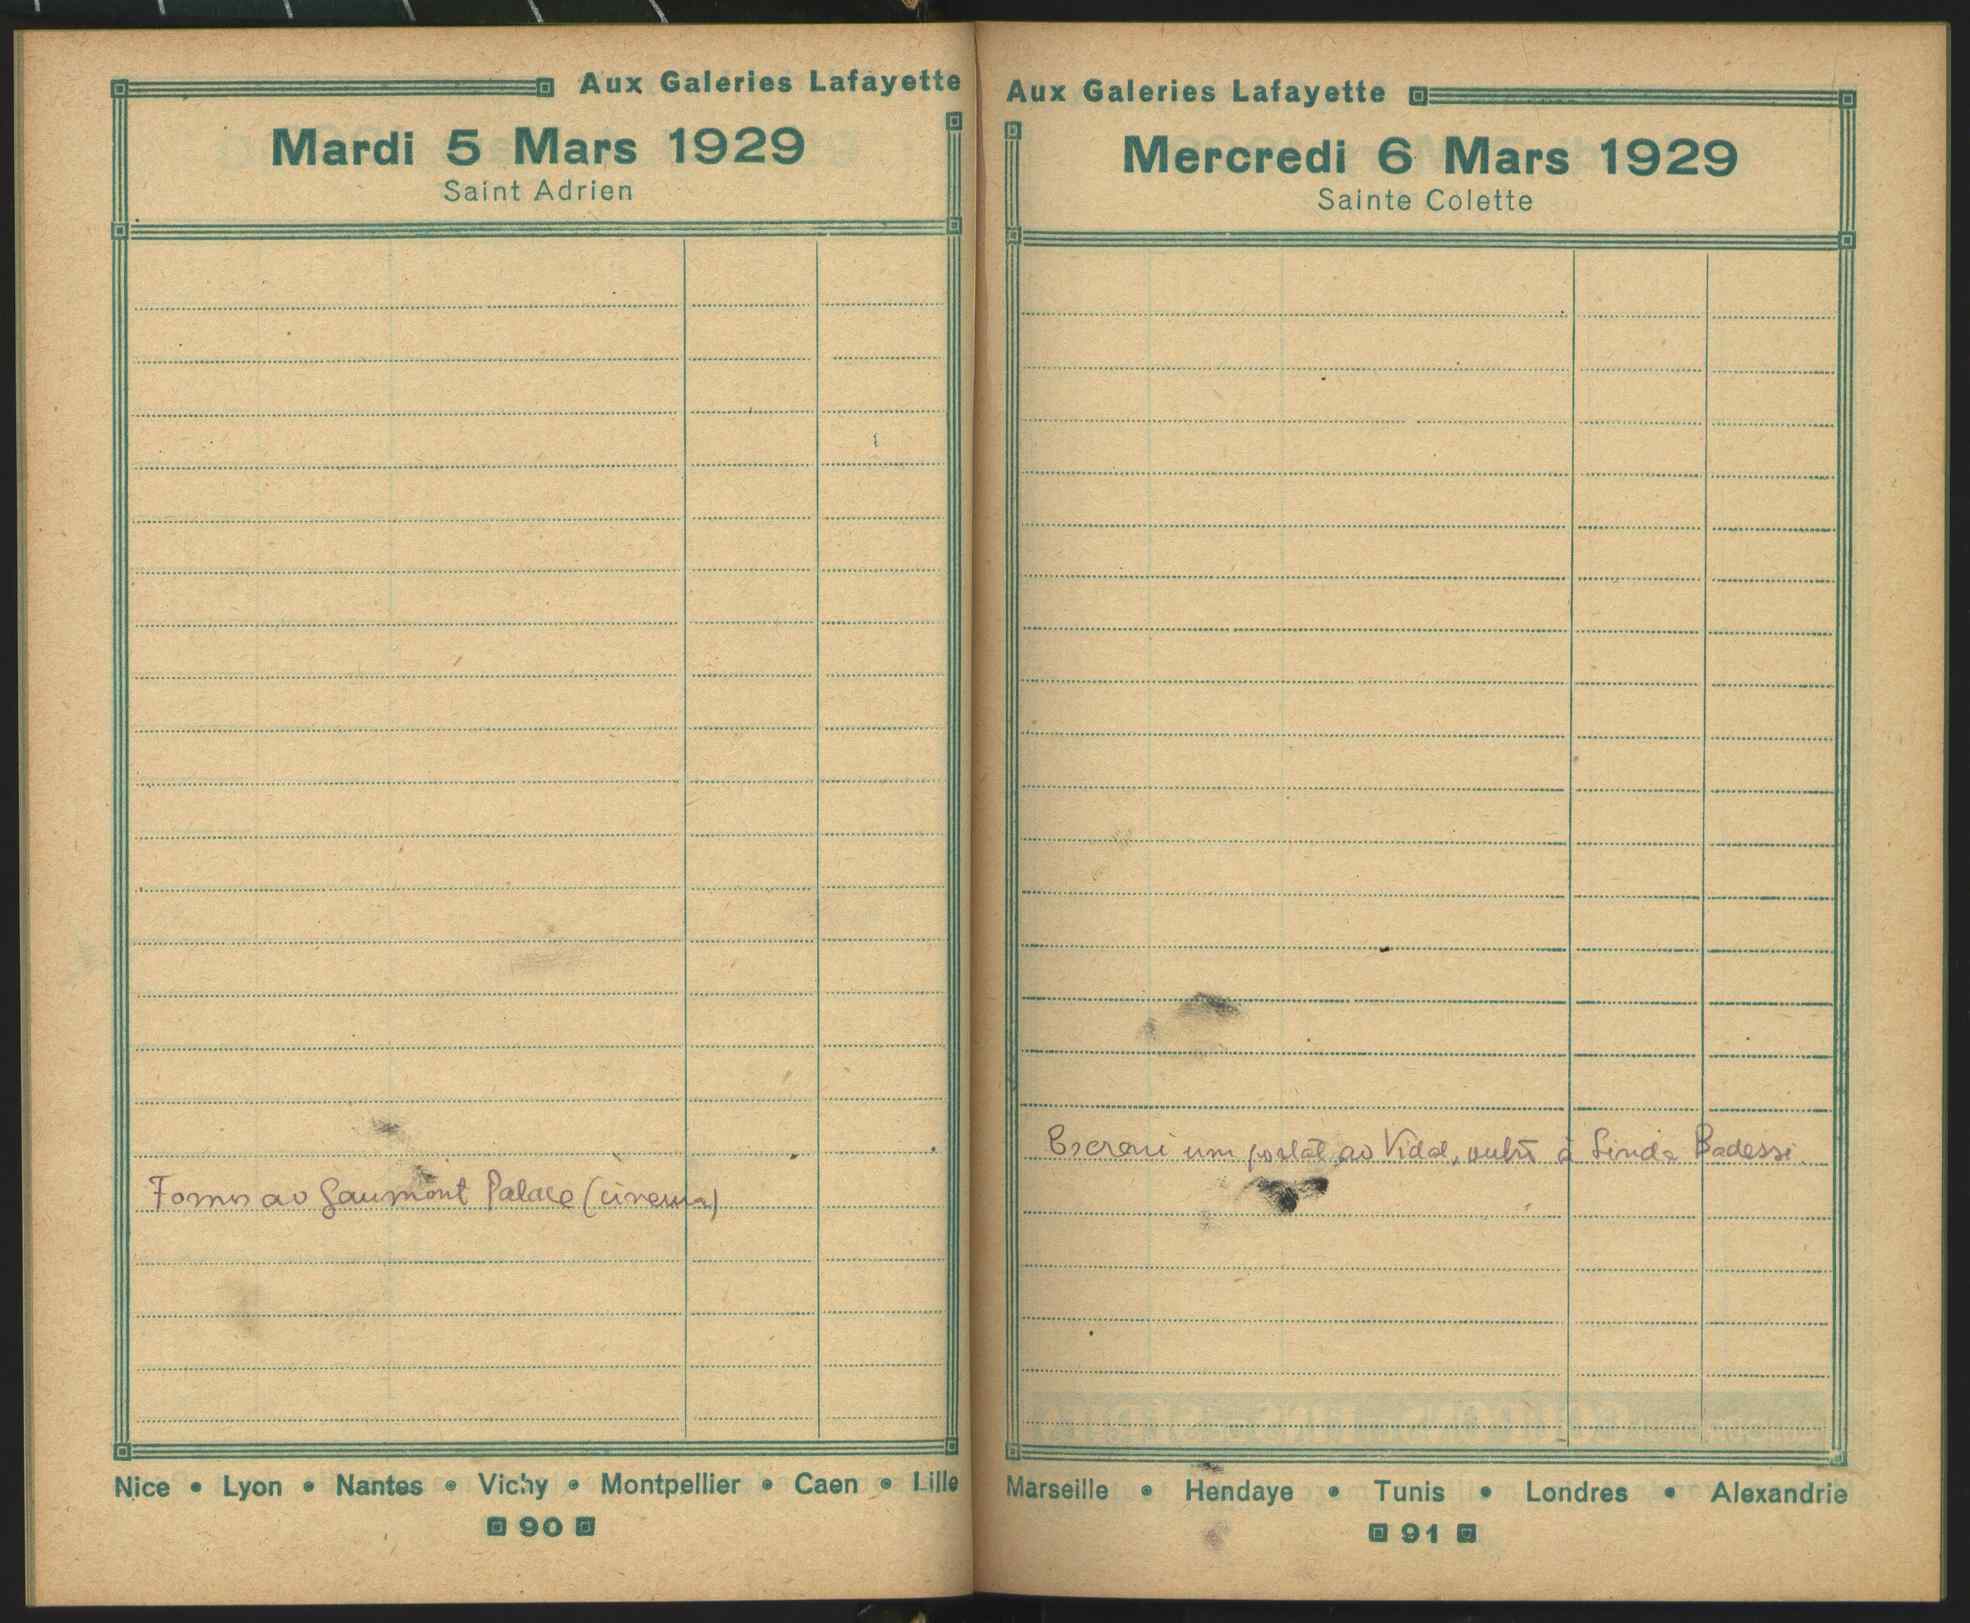 Aux Galeries Lafayette
Mardi 5 Mars 1929
Saint Adrien
Fomos ao Gaumont Palace (cinema)
Nice • Lyon • Nantes • Vichy • Montpellier • Caen • Lille
90
Aux Galeries Lafayette
Mercredi 6 Mars 1929
Sainte Colette
Escrevi um postal ao Vidal, outro à Linda Badessi.
Marseille • Hendaye • Tunis • Londres • Alexandrie
91